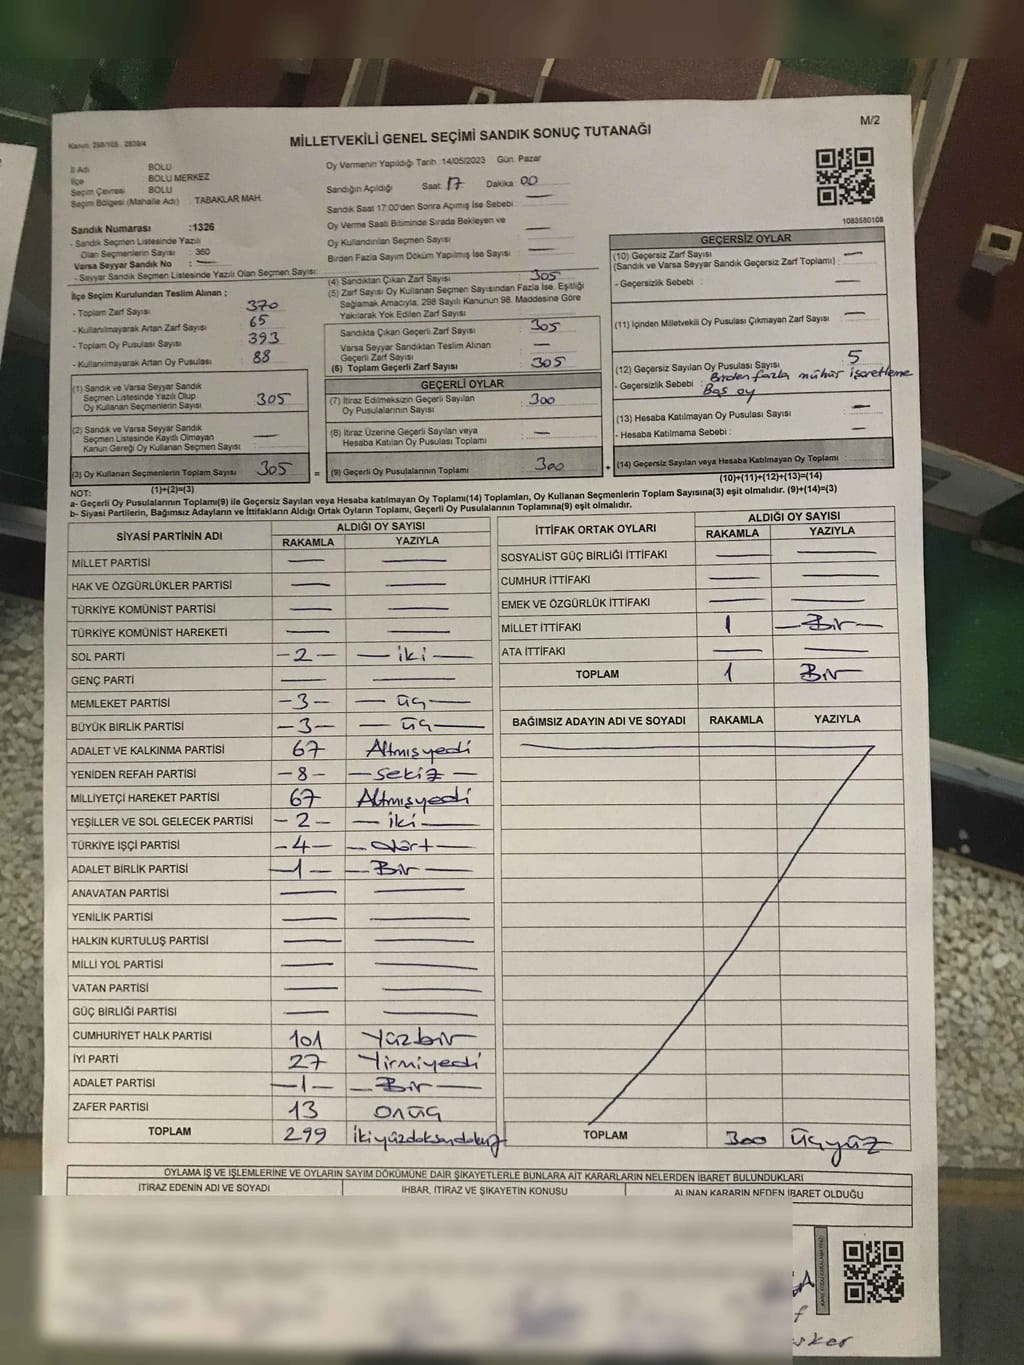 M/2
Kanun: 298/105 , 2839/4
MİLLETVEKİLİ GENEL SEÇİMİ SANDIK SONUÇ TUTANAĞI
İl Adı BOLU
İlçe BOLU MERKEZ
Seçim Çevresi BOLU
Seçim Bölgesi (Mahalle Adı) TABAKLAR MAH.
Sandık Numarası :1326
- Sandık Seçmen Listesinde Yazılı
Olan Seçmenlerin Sayısı : 360
Varsa Seyyar Sandık No : —
- Seyyar Sandık Seçmen Listesinde Yazılı Olan Seçmen Sayısı:
Oy Vermenin Yapıldığı Tarih :14/05/2023 Gün: Pazar
Sandığın Açıldığı Saat: 17 Dakika 00
Sandık Saat 17:00'den Sonra Açımış İse Sebebi : —
Oy Verme Saati Bitiminde Sırada Bekleyen ve
Oy Kullandırılan Seçmen Sayısı —
Birden Fazla Sayım Döküm Yapılmış İse Sayısı : —
1083580108
İlçe Seçim Kurulundan Teslim Alınan ;
- Toplam Zarf Sayısı 370
- Kullanılmayarak Artan Zarf Sayısı 65
- Toplam Oy Pusulası Sayısı 393
- Kullanılmayarak Artan Oy Pusulası 88
(1) Sandık ve Varsa Seyyar Sandık
Seçmen Listesinde Yazılı Olup
Oy Kullanan Seçmenlerin Sayısı 305
(2) Sandık ve Varsa Seyyar Sandık
Seçmen Listesinde Kayıtlı Olmayan
Kanun Gereği Oy Kullanan Seçmen Sayısı —
(3) Oy Kullanan Seçmenlerin Toplam Sayısı 305 =
(1)+(2)=(3)
(4) Sandıktan Çıkan Zarf Sayısı 305
(5) Zarf Sayısı Oy Kullanan Seçmen Sayısından Fazla İse, Eşitliği
Sağlamak Amacıyla, 298 Sayılı Kanunun 98. Maddesine Göre
Yakılarak Yok Edilen Zarf Sayısı
Sandıkta Çıkan Geçerli Zarf Sayısı 305
Varsa Seyyar Sandıktan Teslim Alınan
Geçerli Zarf Sayısı —
(6) Toplam Geçerli Zarf Sayısı 305
GEÇERLİ OYLAR
(7) İtiraz Edilmeksizin Geçerli Sayılan
Oy Pusulalarının Sayısı 300
(8) İtiraz Üzerine Geçerli Sayılan veya
Hesaba Katılan Oy Pusulası Toplamı —
(9) Geçerli Oy Pusulalarının Toplamı 300 +
GEÇERSİZ OYLAR
(10) Geçersiz Zarf Sayısı
(Sandık ve Varsa Seyyar Sandık Geçersiz Zarf Toplamı) : —
- Geçersizlik Sebebi : —
(11) İçinden Milletvekili Oy Pusulası Çıkmayan Zarf Sayısı —
(12) Geçersiz Sayılan Oy Pusulası Sayısı 5
- Geçersizlik Sebebi : Birden fazla mühür işaretleme
Boş oy
(13) Hesaba Katılmayan Oy Pusulası Sayısı —
- Hesaba Katılmama Sebebi : —
(14) Geçersiz Sayılan veya Hesaba Katılmayan Oy Toplamı
(10)+(11)+(12)+(13)=(14)
NOT:
a- Geçerli Oy Pusulalarının Toplamı(9) ile Geçersiz Sayılan veya Hesaba katılmayan Oy Toplamı(14) Toplamları, Oy Kullanan Seçmenlerin Toplam Sayısına(3) eşit olmalıdır. (9)+(14)=(3)
b- Siyasi Partilerin, Bağımsız Adayların ve İttifakların Aldığı Ortak Oyların Toplamı, Geçerli Oy Pusulalarının Toplamına(9) eşit olmalıdır.
SİYASİ PARTİNİN ADI ALDIĞI OY SAYISI
RAKAMLA YAZIYLA
MİLLET PARTİSİ — —
HAK VE ÖZGÜRLÜKLER PARTİSİ — —
TÜRKİYE KOMÜNİST PARTİSİ — —
TÜRKİYE KOMÜNİST HAREKETİ — —
SOL PARTİ -2- — iki —
GENÇ PARTİ — —
MEMLEKET PARTİSİ -3- — üç —
BÜYÜK BİRLİK PARTİSİ -3- — üç —
ADALET VE KALKINMA PARTİSİ 67 Altmışyedi
YENİDEN REFAH PARTİSİ -8- — sekiz —
MİLLİYETÇİ HAREKET PARTİSİ 67 Altmışyedi
YEŞİLLER VE SOL GELECEK PARTİSİ -2- — iki —
TÜRKİYE İŞÇİ PARTİSİ -4- — dört —
ADALET BİRLİK PARTİSİ -1- — Bir —
ANAVATAN PARTİSİ — —
YENİLİK PARTİSİ — —
HALKIN KURTULUŞ PARTİSİ — —
MİLLİ YOL PARTİSİ — —
VATAN PARTİSİ — —
GÜÇ BİRLİĞİ PARTİSİ — —
CUMHURİYET HALK PARTİSİ 101 Yüzbir
İYİ PARTİ 27 Yirmiyedi
ADALET PARTİSİ -1- — Bir —
ZAFER PARTİSİ 13 onüç
TOPLAM 299 ikiyüzdoksandokuz
İTTİFAK ORTAK OYLARI ALDIĞI OY SAYISI
RAKAMLA YAZIYLA
SOSYALİST GÜÇ BİRLİĞİ İTTİFAKI — —
CUMHUR İTTİFAKI — —
EMEK VE ÖZGÜRLÜK İTTİFAKI — —
MİLLET İTTİFAKI 1 — Bir —
ATA İTTİFAKI — —
TOPLAM 1 Bir
BAĞIMSIZ ADAYIN ADI VE SOYADI RAKAMLA YAZIYLA
TOPLAM 300 üçyüz
OYLAMA İŞ VE İŞLEMLERİNE VE OYLARIN SAYIM DÖKÜMÜNE DAİR ŞİKAYETLERLE BUNLARA AİT KARARLARIN NELERDEN İBARET BULUNDUKLARI
İTİRAZ EDENİN ADI VE SOYADI İHBAR, İTİRAZ VE ŞİKAYETİN KONUSU ALINAN KARARIN NEDEN İBARET OLDUĞU